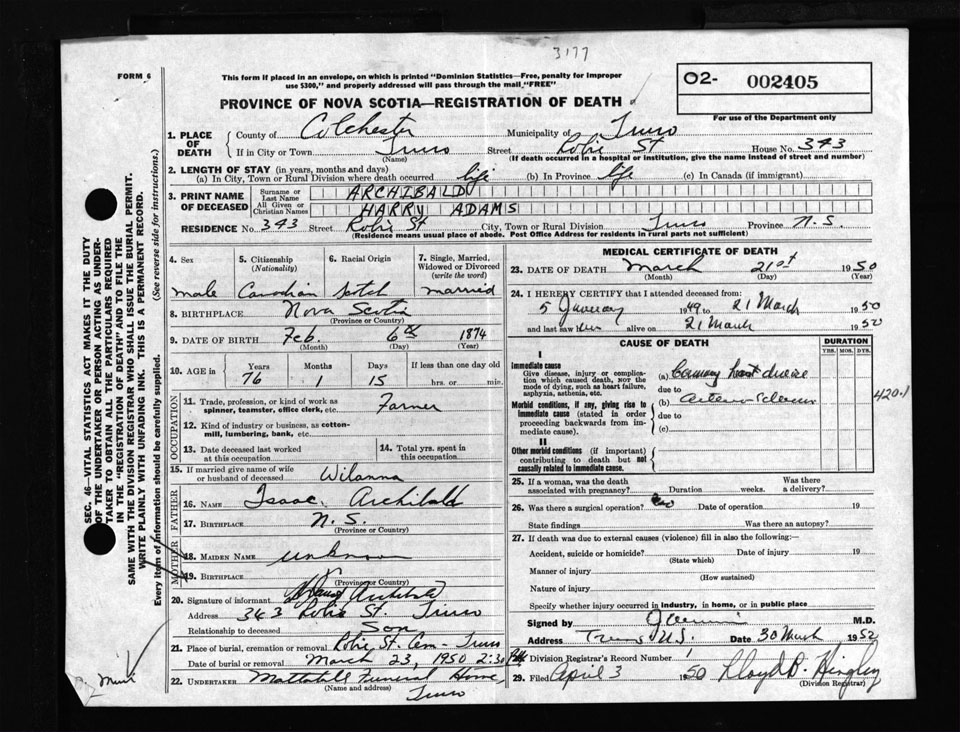 3177
FORM 6
This form if placed in an envelope, on which is printed "Dominion Statistics—Free, penalty for improper
use $300," and properly addressed will pass through the mail "FREE"
O2- 002405
PROVINCE OF NOVA SCOTIA—REGISTRATION OF DEATH
For use of the Department only
1. PLACE OF DEATH
County of Colchester Municipality of Truro
If in City or Town Truro Street Robie St House No. 343
(Name) (If death occurred in a hospital or institution, give the name instead of street and number)
2. LENGTH OF STAY (in years, months and days)
(a) In City, Town or Rural Division where death occurred life (b) In Province life (c) In Canada (if immigrant)
3. PRINT NAME OF DECEASED
Surname or Last Name ARCHIBALD
All Given or Christian Names HARRY ADAMS
RESIDENCE No. 343 Street Robie St City, Town or Rural Division Truro Province N.S.
(Residence means usual place of abode. Post Office Address for residents in rural parts not sufficient)
4. Sex male
5. Citizenship (Nationality) Canadian
6. Racial Origin Scotch
7. Single, Married, Widowed or Divorced (write the word) married
8. BIRTHPLACE Nova Scotia
(Province or Country)
9. DATE OF BIRTH Feb. 6th 1874
(Month) (Day) (Year)
10. AGE in Years Months Days If less than one day old
76 1 15 hrs. or min.
OCCUPATION
11. Trade, profession, or kind of work as Farmer
spinner, teamster, office clerk, etc.
12. Kind of industry or business, as cotton-
mill, lumbering, bank, etc.
13. Date deceased last worked
at this occupation
14. Total yrs. spent in
this occupation
15. If married give name of wife
or husband of deceased Wilanna
FATHER
16. NAME Isaac Archibald
17. BIRTHPLACE N.S.
(Province or Country)
MOTHER
18. MAIDEN NAME unknown
19. BIRTHPLACE
(Province or Country)
20. Signature of informant Archibald
Address 343 Robie St. Truro
Relationship to deceased Son
21. Place of burial, cremation or removal Robie St. Cem - Truro
Date of burial or removal March 23, 1950 2:30 PM
22. UNDERTAKER Mattatall Funeral Home
(Name and address) Truro
MEDICAL CERTIFICATE OF DEATH
23. DATE OF DEATH March 21st 1950
(Month) (Day) (Year)
24. I HEREBY CERTIFY that I attended deceased from:
5 January 1949 to 21 March 1950
and last saw him alive on 21 March 1950
CAUSE OF DEATH
DURATION
YRS. MOS. DYS.
I
Immediate cause
Give disease, injury or complica-
tion which caused death, not the
mode of dying, such as heart failure,
asphyxia, asthenia, etc.
(a) Coronary heart disease
due to
Morbid conditions, if any, giving rise to
immediate cause (stated in order
proceeding backwards from im-
mediate cause).
(b) Arterio Sclerosis
due to
(c)
420.1
II
Other morbid conditions (if important)
contributing to death but not
causally related to immediate cause.
25. If a woman, was the death
associated with pregnancy? Duration weeks. Was there
a delivery?
26. Was there a surgical operation? no Date of operation 19
State findings Was there an autopsy?
27. If death was due to external causes (violence) fill in also the following:—
Accident, suicide or homicide? Date of injury 19
(State which)
Manner of injury
(How sustained)
Nature of injury
Specify whether injury occurred in industry, in home, or in public place
Signed by M.D.
Address Truro N.S. Date 30 March 1952
Division Registrar's Record Number
29. Filed April 3 1950 Lloyd D. Hingley
(Division Registrar)
SEC. 46—VITAL STATISTICS ACT MAKES IT THE DUTY
OF THE UNDERTAKER OR PERSON ACTING AS UNDER-
TAKER TO OBTAIN ALL THE PARTICULARS REQUIRED
IN THE "REGISTRATION OF DEATH" AND TO FILE THE
SAME WITH THE DIVISION REGISTRAR WHO SHALL ISSUE THE BURIAL PERMIT.
WRITE PLAINLY WITH UNFADING INK. THIS IS A PERMANENT RECORD.
Every item of information should be carefully supplied. (See reverse side for instructions.)